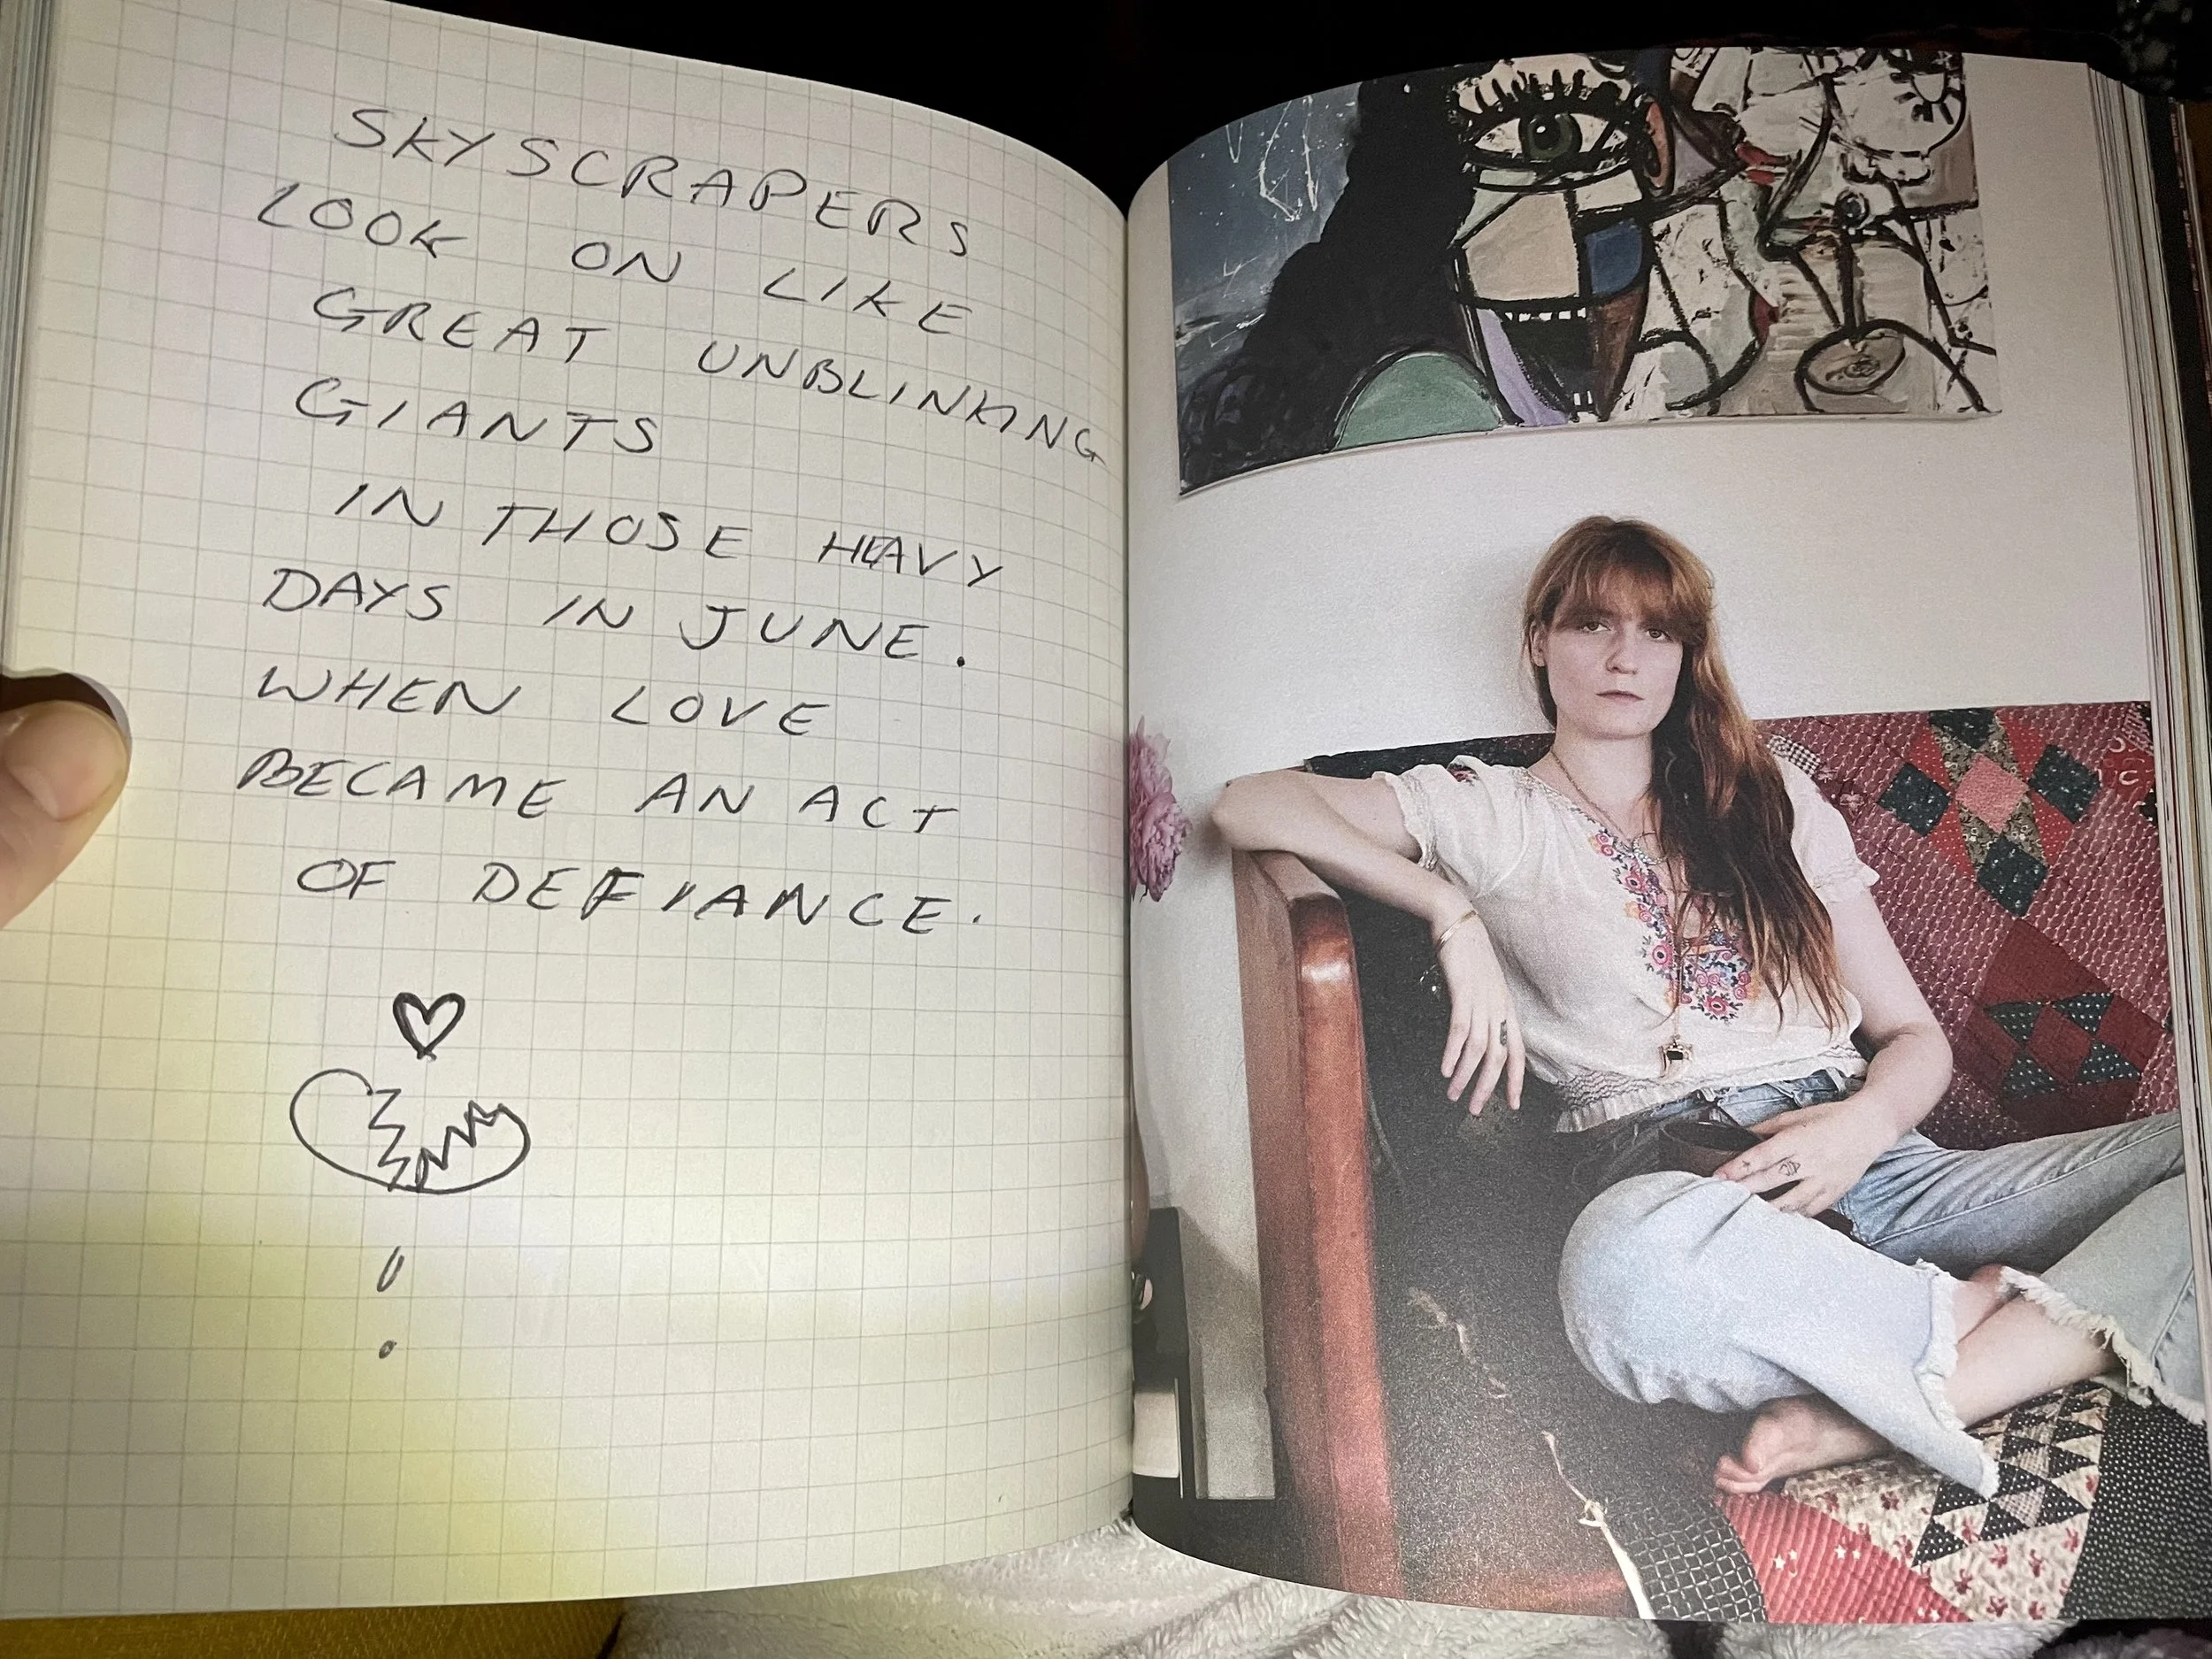 SKYSCRAPERS
LOOK ON LIKE
GREAT UNBLINKING
GIANTS
IN THOSE HEAVY
DAYS IN JUNE.
WHEN LOVE
BECAME AN ACT
OF DEFIANCE.